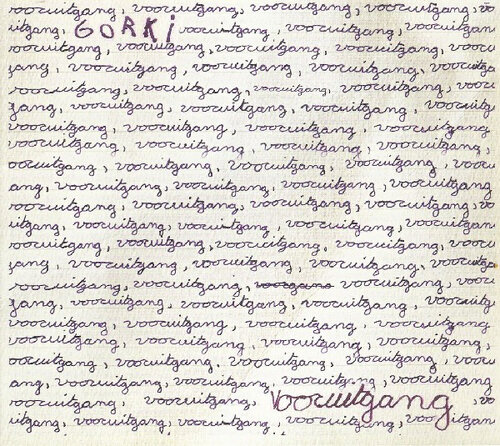 vooruitgang, vooruitgang, vooruitgang, vooruitgang, vo
uitgang, GORKI vooruitgang, vooruitgang, vooruitgan
vooruitgang, vooruitgang, vooruitgang, vooruitgang, vooru
gang, vooruitgang, vooruitgang, vooruitgang, vooruitga
vooruitgang, vooruitgang, vooruitgang, vooruitgang, vooru
gang, vooruitgang, vooruitgang, vooruitgang, vooruitg
vooruitgang, vooruitgang, vooruitgang, vooruitgang
vooruitgang, vooruitgang, vooruitgang, vooruitgan
ooruitgang, vooruitgang, vooruitgang, vooruitgang, voor
ang, vooruitgang, vooruitgang, vooruitgang, vooruitgang
vooruitgang, vooruitgang, vooruitgang, vooruitgang, vooru
uitgang, vooruitgang, vooruitgang, vooruitgang, vooruitgan
vooruitgang, vooruitgang, vooruitgang, vooruitgang, vooru
gang, vooruitgang, vooruitgang, vooruitgang, vooruitga
vooruitgang, vooruitgang, vooruitgang, vooru
gang, vooruitgang, vooruitgang, vooruitgang, vooruitg
vooruitgang, vooruitgang, vooruitgang, vooruitgang
vooruitgang, vooruitgang, vooruitgang, vooruitgan
ooruitgang, vooruitgang, vooruitgang, vooruitgang, voor
ang, vooruitgang, vooruitgang, vooruitgang, vooruitgang
vooruitgang, vooruitgang, Vooruitgang, vo
uitgang, vooruitgang, vooruitgang, vooruitgang, vooruitgan